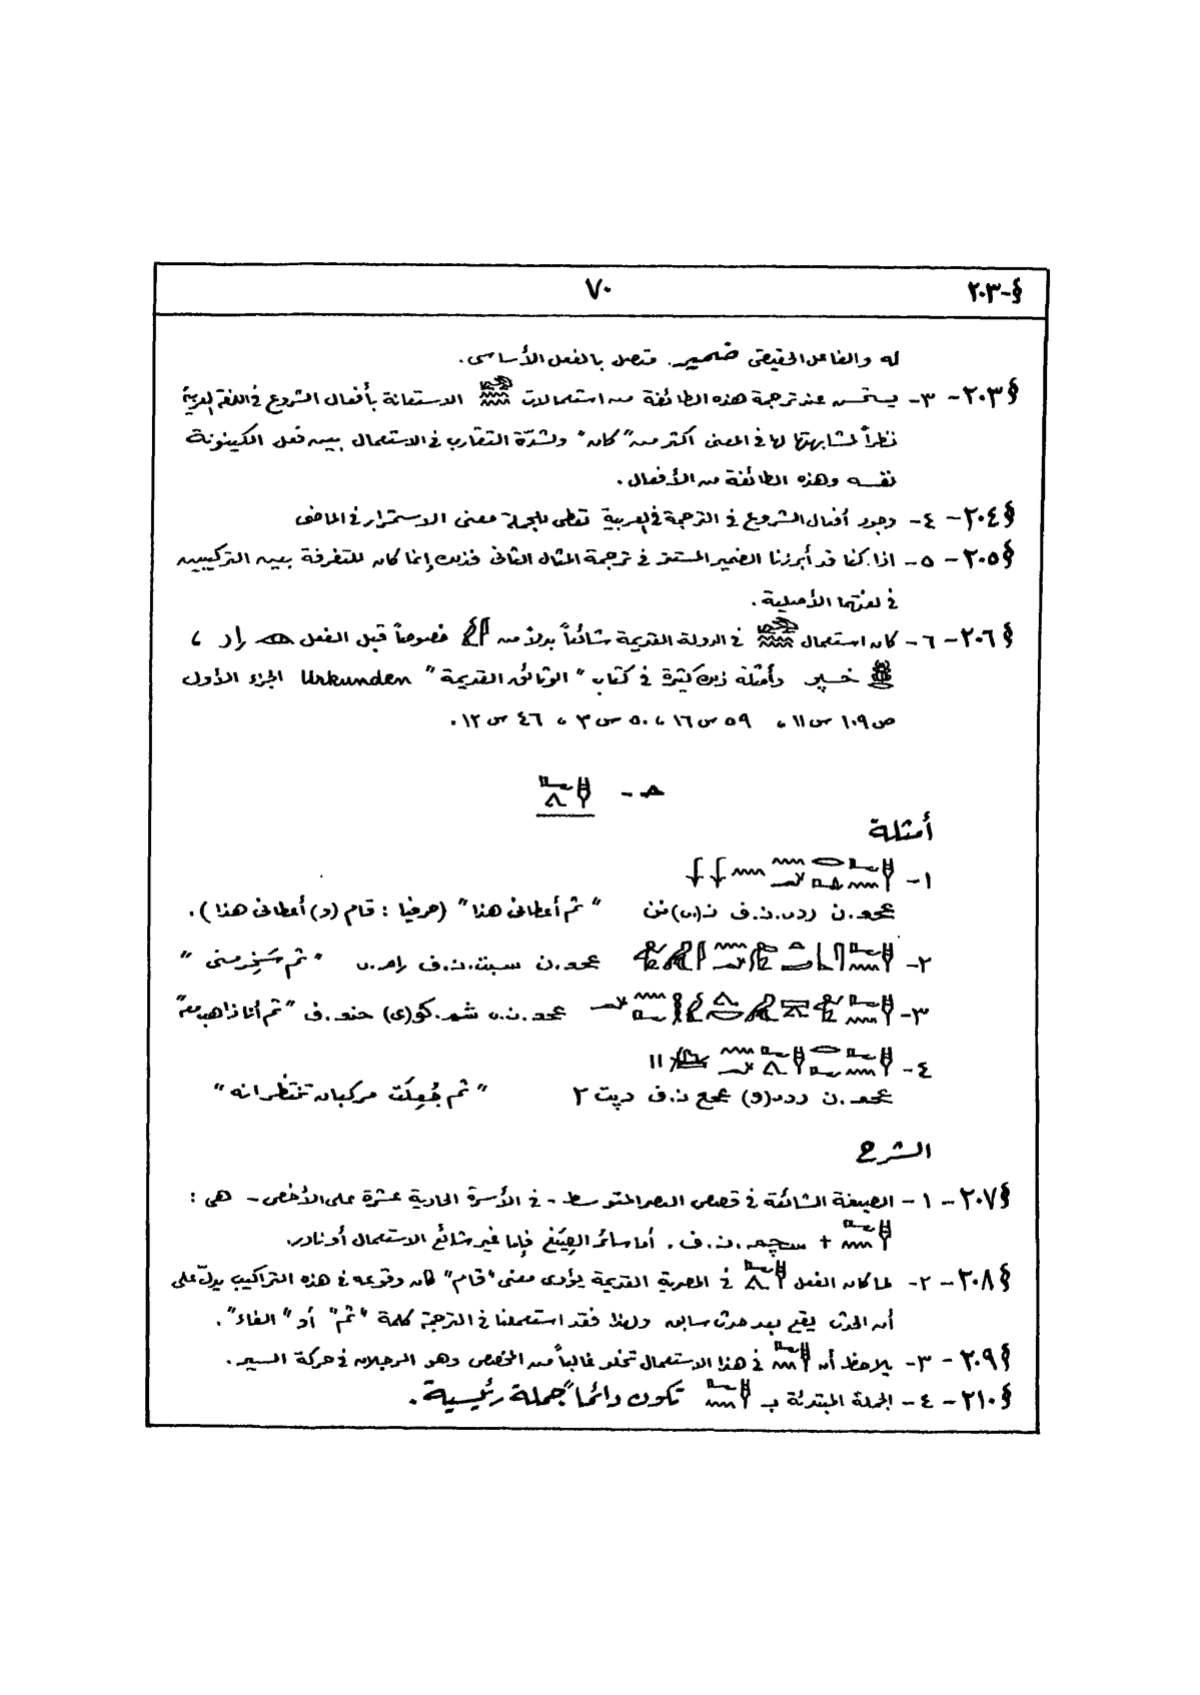 §-٢٠٣
٧٠
له والفاعل الحقيقى ضمير متصل بالفعل الأساسى.
§٢٠٣- ٣- يستحسن عند ترجمة هذه الطائفة من استعمالات الاستعانة بأفعال الشروع فى اللغة العربية
نظراً لمشابهتها لها فى المعنى أكثر من "كان" ولشدّة التقارب فى الاستعمال بين فعل الكينونة
نفسه وهذه الطائفة من الأفعال.
§٢٠٤- ٤- وجود أفعال الشروع فى الترجمة فى العربية تعطى للجملة معنى الاستمرار فى الماضى
§٢٠٥- ٥- اذا كنا قد أبرزنا الضمير المستتر فى ترجمة المثال الثانى فذلك إنما كان للتفرقة بين التركيبين
فى لغتها الأصلية.
§٢٠٦- ٦- كان استعمال فى الدولة القديمة شائعاً بدلاً من خصوصاً قبل الفعل راد ،
خپر وأمثلة ذلك كثيرة فى كتاب "الوثائق القديمة" Urkunden الجزء الأول
ص١٠٩ س١١، ٥٩ س١٦، ٥٠ س٣، ٤٦ س١٢.
حـ -
أمثلة
١-
عحع.ن ردى.ن.ف ن(ى)نن "ثم أعطانى هذا" (حرفيا : قام (و) أعطانى هذا).
٢- عحع.ن سبت.ن.ف رام.ى "ثم سَخِر منى"
٣- عحع.ن.ى شم.كو(ى) حنع.ف "ثم أنا ذاهب معه"
٤-
عحع.ن ردى(و) عحع ن.ف دپت ٢ "ثم جُعِلَت مركبان تنتظرانه"
الشرح
§٢٠٧- ١- الصيغة الشائعة فى قصص العصر المتوسط - فى الأسرة الحادية عشرة على الأخص - هى :
+ سچم.ن.ف. أما سائر الصِيَغ فإما غير شائع الاستعمال أو نادر.
§٢٠٨- ٢- لما كان الفعل فى المصرية القديمة يؤدى معنى "قام" كان وقوعه فى هذه التراكيب يدلّ على
أن الحدث يقع بعد حدث سابق ولهذا فقد استعملنا فى الترجمة كلمة "ثم" أو "الفاء".
§٢٠٩- ٣- يلاحظ أن فى هذا الاستعمال تخلو غالباً من المخصص وهو الرجلان فى حركة السير.
§٢١٠- ٤- الجملة المبتدئة بـ تكون دائماً جملة رئيسية.